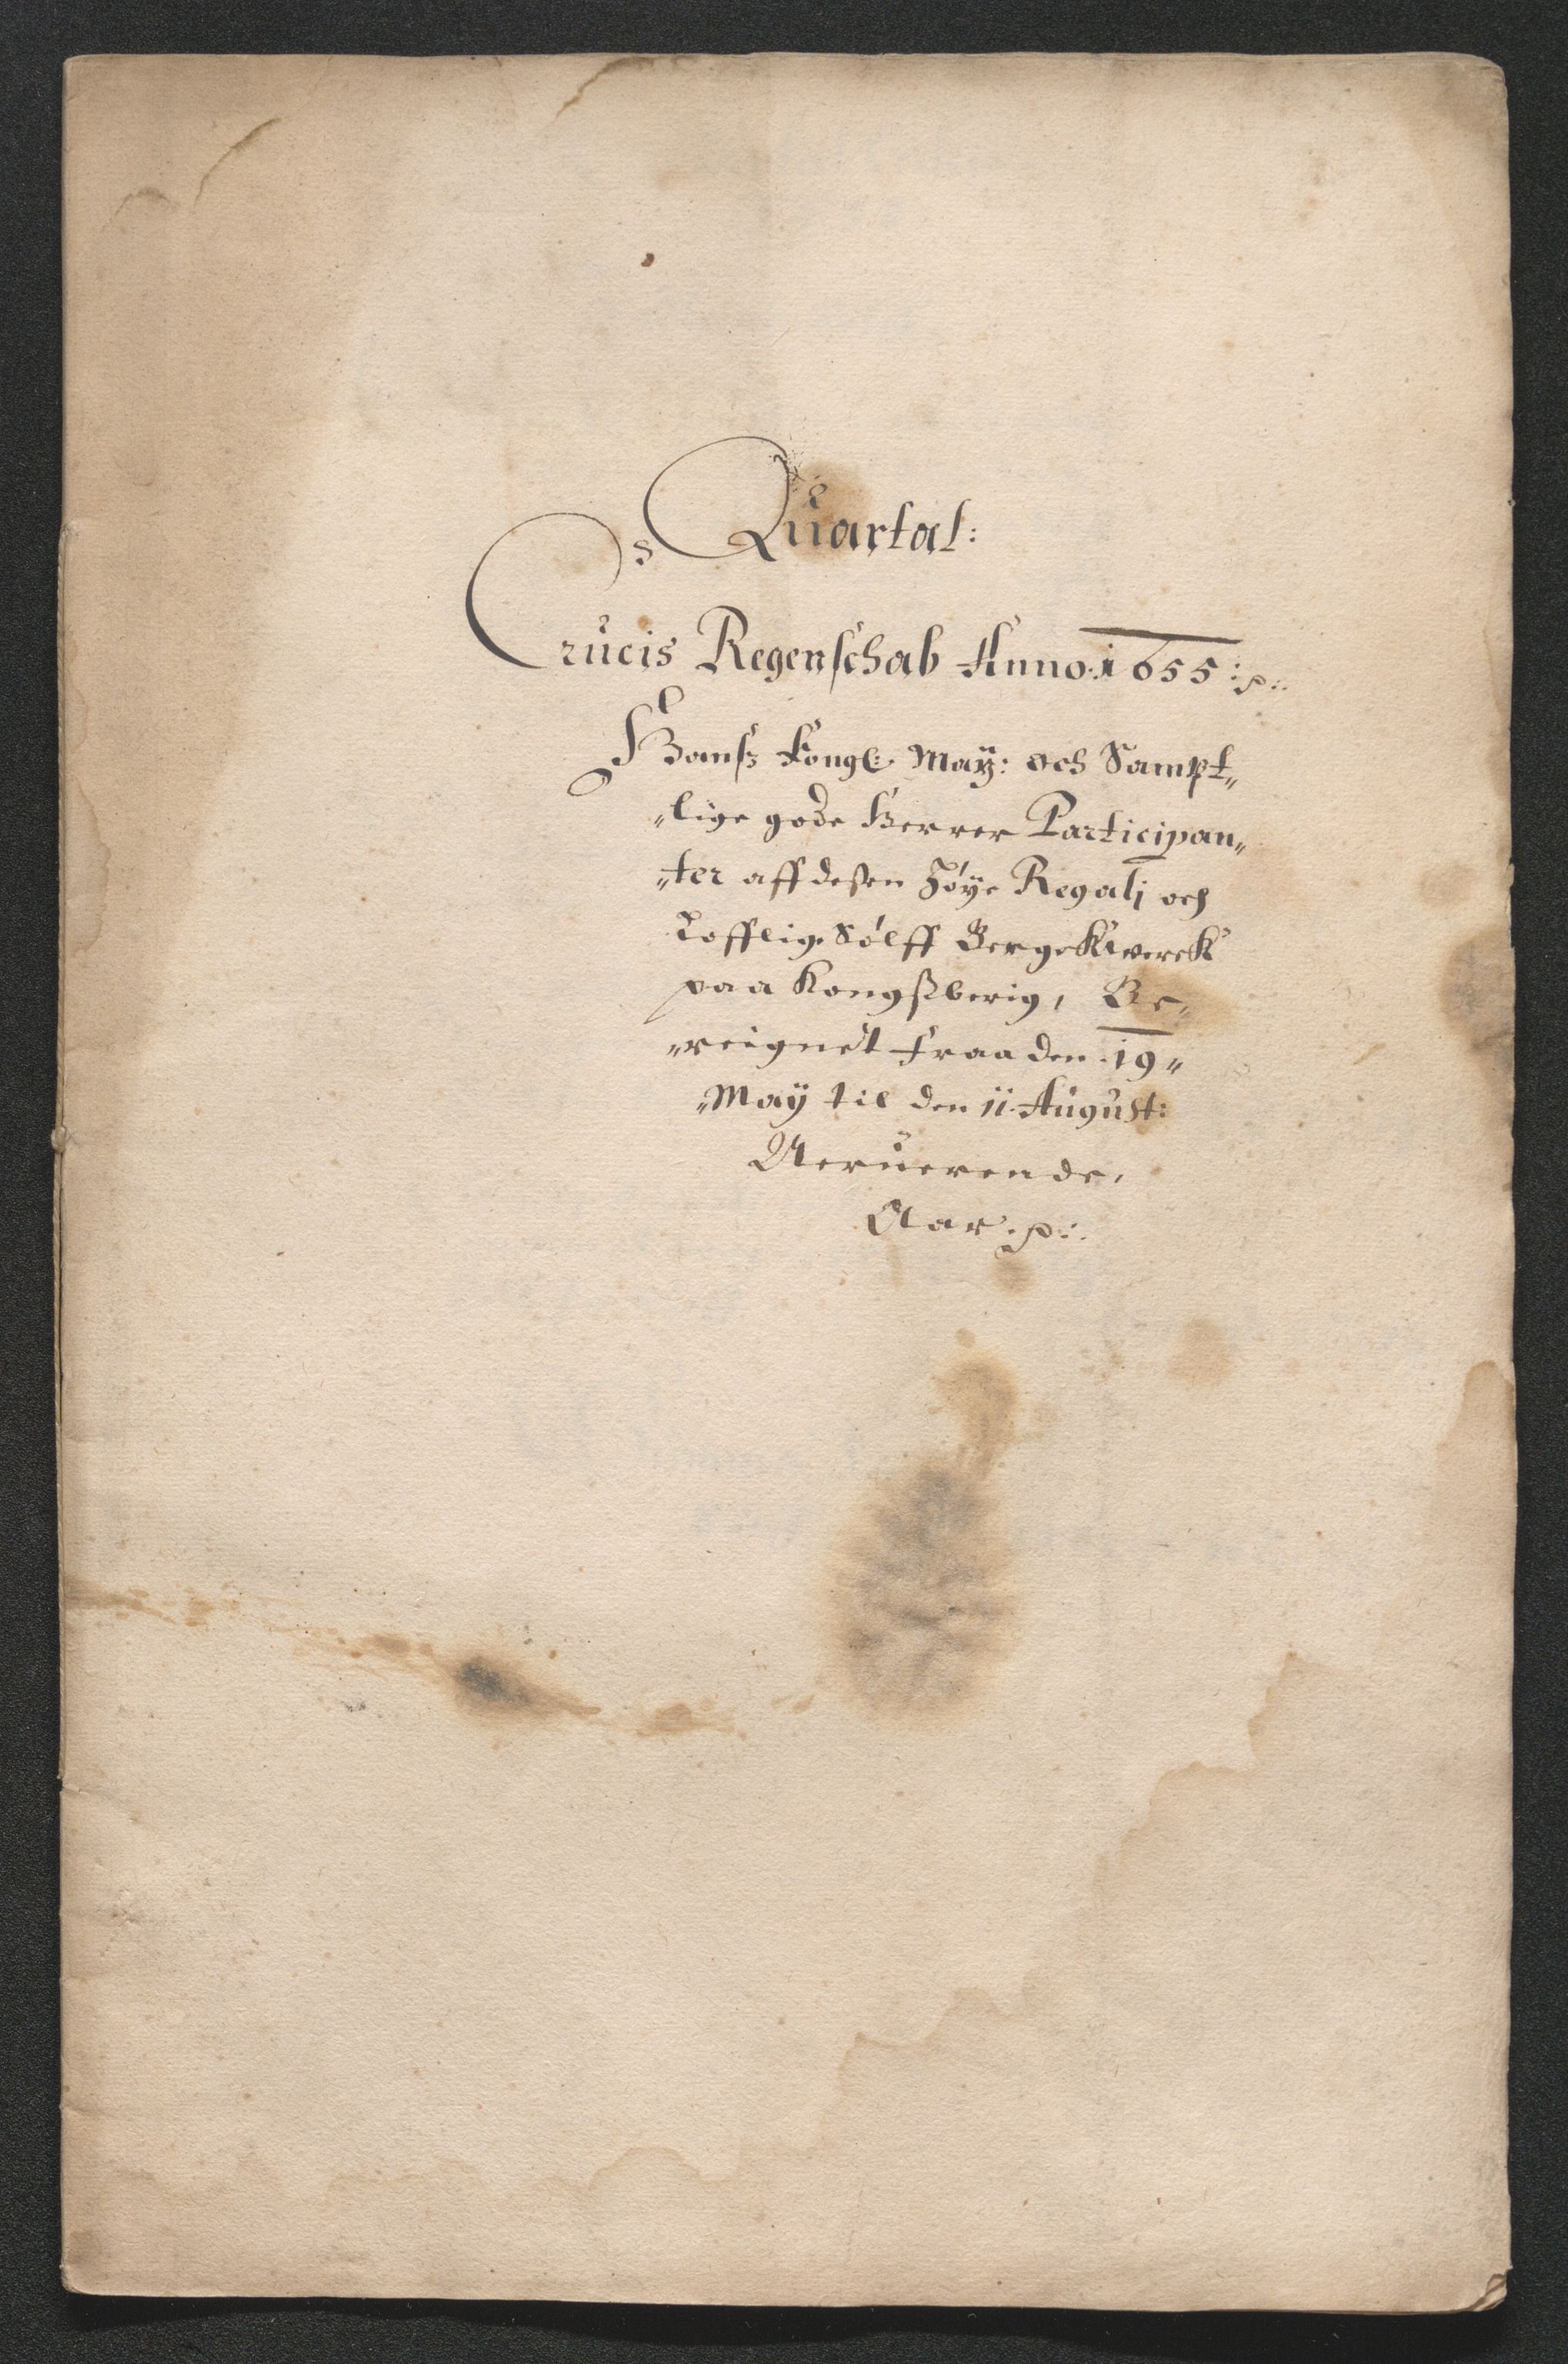 Quartal:
Crucis Regenschab Anno: 1655 :p:.
Hanß Kongl: May: och Sampt„
„lige gode Herrer Participan„
„ter aff desen Höye Regali och
Lofflig. Sölff Bergckwerck
paa Kongßberig, Be„
„reignet fraa den 19„
„May til den 11. August:
Neruerende,
Aar. p:.